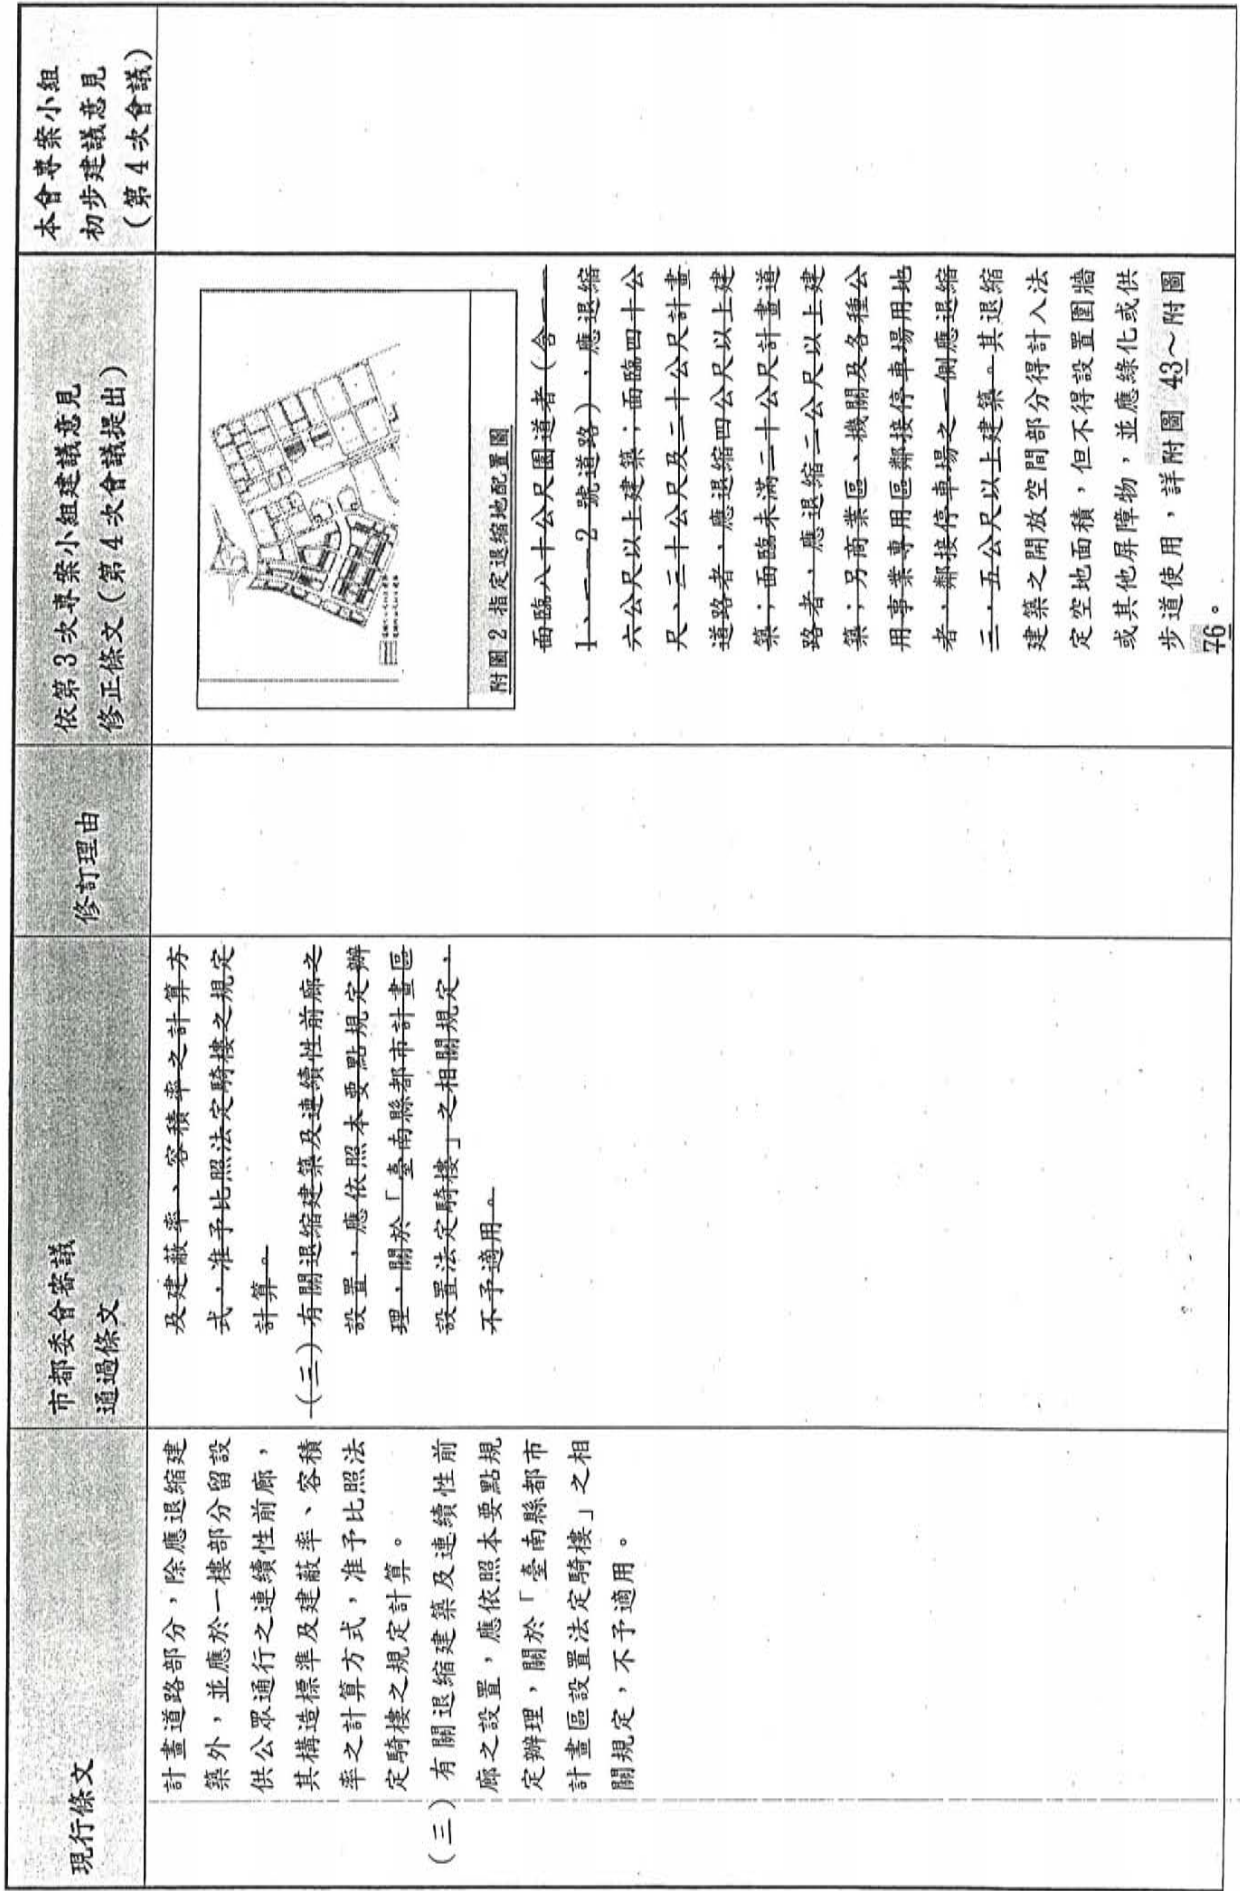 現行條文
市都委會審議
通過條文
修訂理由
依第3次專案小組建議意見
修正條文(第4次會議提出)
本會專案小組
初步建議意見
(第4次會議)
計畫道路部分，除應退縮建
築外，並應於一樓部分留設
供公眾通行之連續性前廊，
其構造標準及建蔽率、容積
率之計算方式，准予比照法
定騎樓之規定計算。
(三)有關退縮建築及連續性前
廊之設置，應依照本要點規
定辦理，關於「臺南縣都市
計畫區設置法定騎樓」之相
關規定，不予適用。
及建蔽率、容積率之計算方
式，准予比照法定騎樓之規定
計算。
(三)有關退縮建築及連續性前廊之
設置，應依照本要點規定辦
理，關於「臺南縣都市計畫區
設置法定騎樓」之相關規定，
不予適用。
附圖2 指定退縮地配置圖
面臨八十公尺園道者(含一—
1、一—2號道路)，應退縮
六公尺以上建築；面臨四十公
尺、三十公尺及二十公尺計畫
道路者，應退縮四公尺以上建
築；面臨未滿二十公尺計畫道
路者，應退縮二公尺以上建
築；另商業區、機關及各種公
用事業專用區鄰接停車場用地
者，鄰接停車場之一側應退縮
三．五公尺以上建築。其退縮
建築之開放空間部分得計入法
定空地面積，但不得設置圍牆
或其他屏障物，並應綠化或供
步道使用，詳附圖 43～附圖
76。